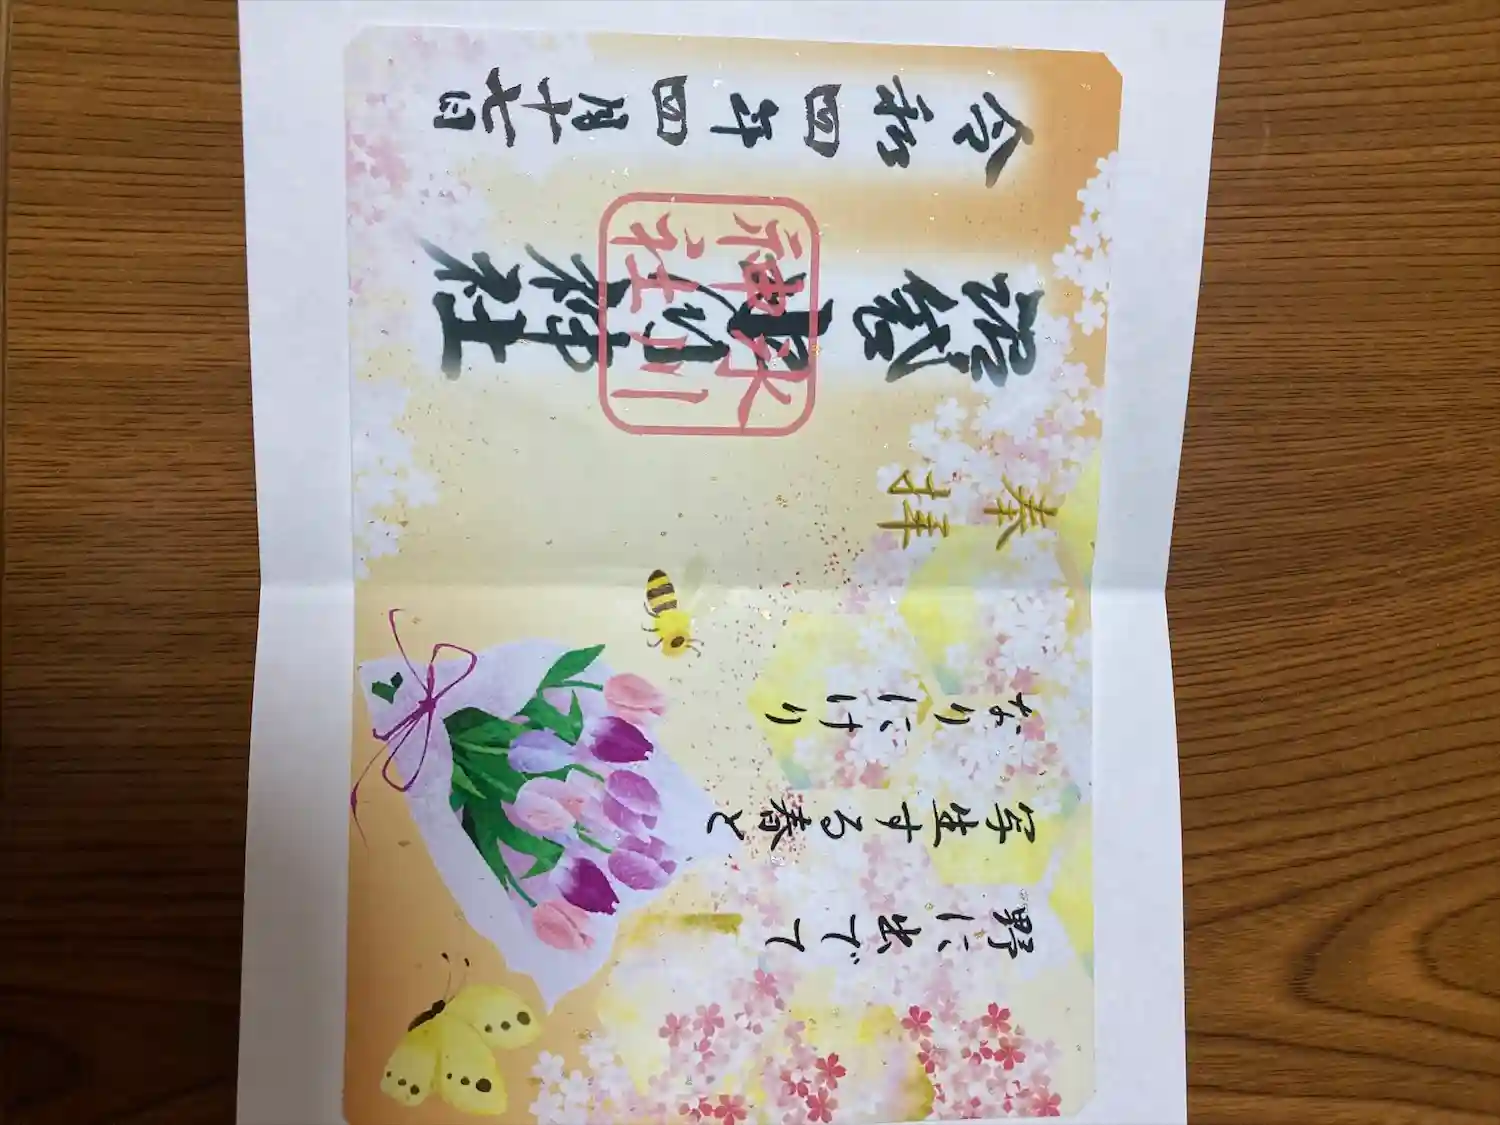 野に出でて
写生する春と
なりにけり
奉拝
沼袋氷川神社
氷川
神社
令和四年四月十七日